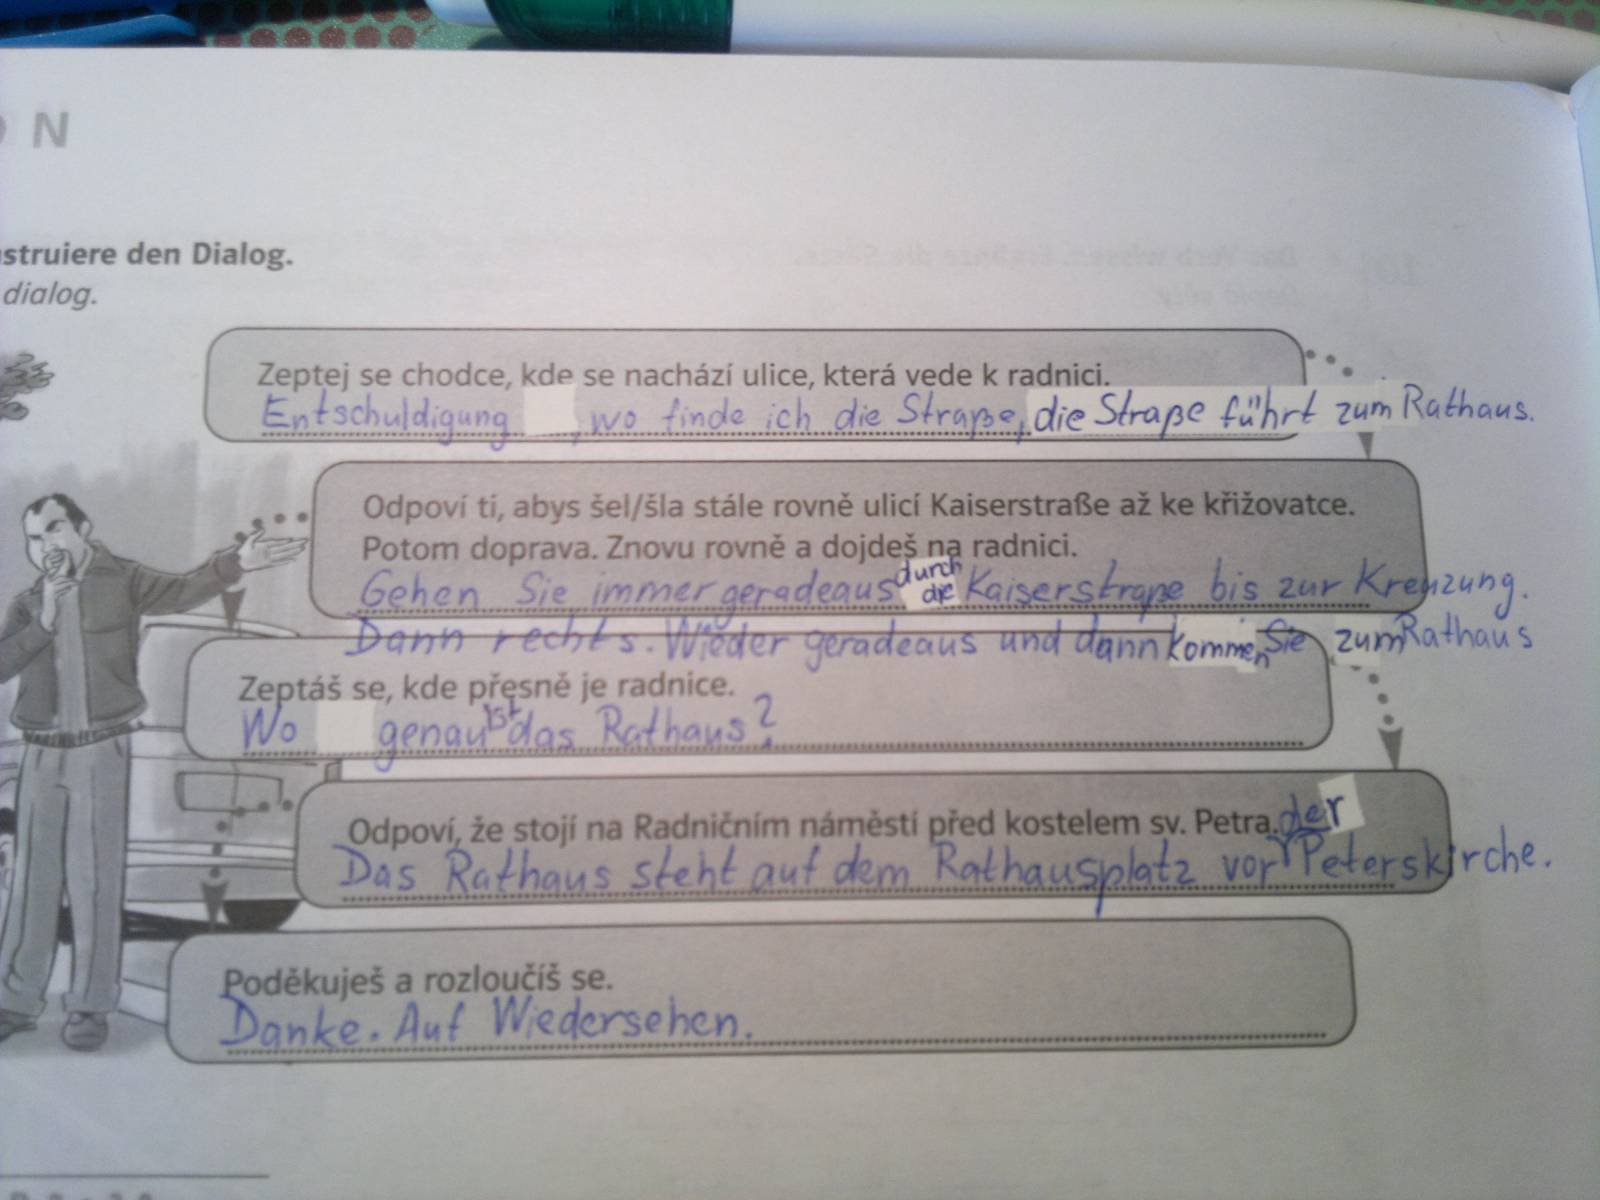 O N
struiere den Dialog.
dialog.
Zeptej se chodce, kde se nachází ulice, která vede k radnici.
Entschuldigung , wo finde ich die Straße, die Straße führt zum Rathaus.
Odpoví ti, abys šel/šla stále rovně ulicí Kaiserstraße až ke křižovatce.
Potom doprava. Znovu rovně a dojdeš na radnici.
Gehen Sie immer geradeaus durch die Kaiserstraße bis zur Kreuzung.
Dann rechts. Wieder geradeaus und dann kommen Sie zum Rathaus
Zeptáš se, kde přesně je radnice.
Wo genau ist das Rathaus?
Odpoví, že stojí na Radničním náměstí před kostelem sv. Petra.
Das Rathaus steht auf dem Rathausplatz vor der Peterskirche.
Poděkuješ a rozloučíš se.
Danke. Auf Wiedersehen.